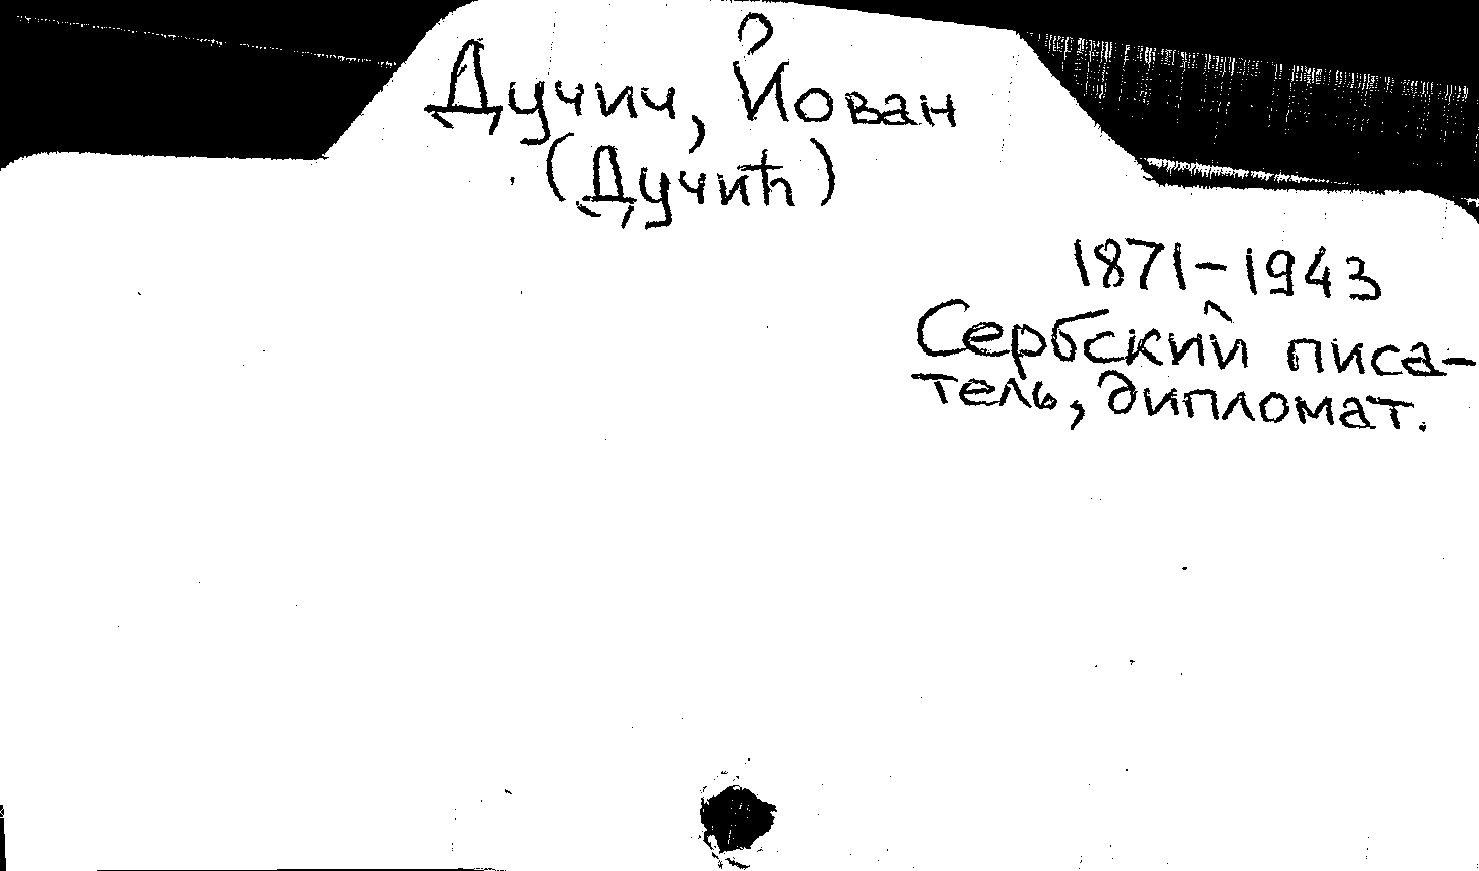 Дучич, Йован
(Дучић)
1871-1943
Сербский писа-
тель, дипломат.